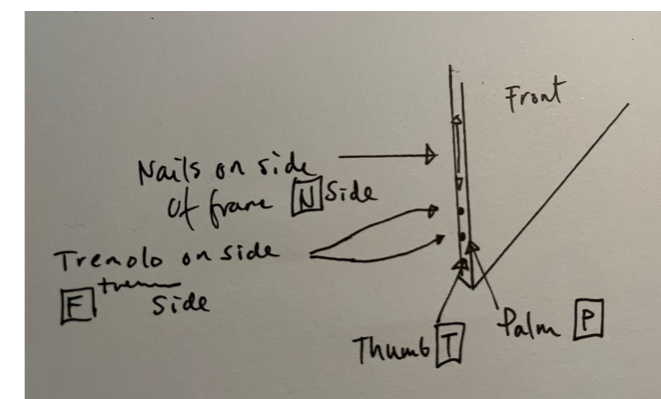 Front
Nails on side
of frame N Side
Tremolo on side
F trem
Side
Thumb T
Palm P